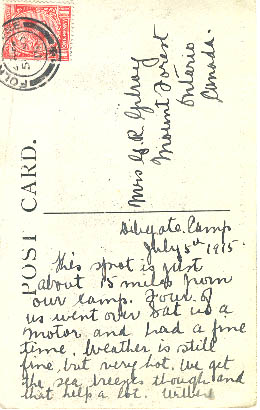 POST CARD.
Mrs G. R. Gilroy
Mount Forest
Ontario
Canada.
Dibgate Camp
July 5th 1915.
This spot is just
about 15 miles from
our camp. Four of
us went over Sat in a
motor and had a fine
time. Weather is still
fine but very hot. We get
the sea breezes though and
that help a lot. Wilbert